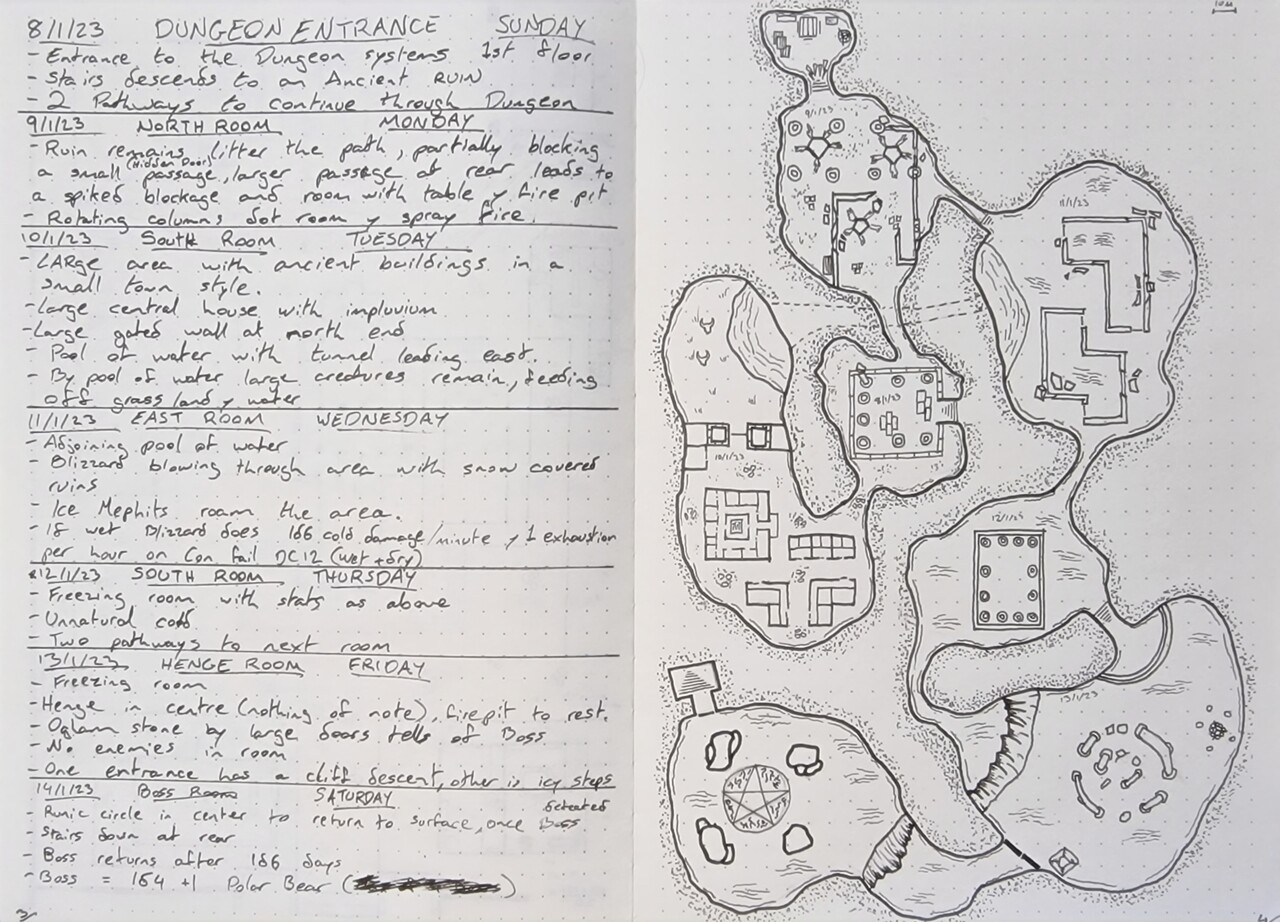 8/1/23 DUNGEON ENTRANCE SUNDAY
- Entrance to the Dungeon systems 1st floor
- Stairs descends to an Ancient RUIN
- 2 Pathways to continue through Dungeon
9/1/23 NORTH ROOM MONDAY
- Ruin remains litter the path, partially blocking
(Hidden Door)
a small passage, larger passage at rear leads to
a spiked blockage and room with table y fire pit
- Rotating columns dot room y spray fire.
10/1/23 SOUTH ROOM TUESDAY
- LARge area with ancient buildings in a
small town style.
- Large central house with impluvium
- Large gated wall at north end
- Pool of water with tunnel leading east.
- By pool of water large creatures remain, feeding
off grass land y water
11/1/23 EAST ROOM WEDNESDAY
- Adjoining pool of water
- Blizzard blowing through area with snow covered
ruins
- Ice Mephits roam the area.
- If wet Blizzard does 1d6 cold damage/minute y 1 exhaustion
per hour on Con fail DC12 (wet + dry)
12/1/23 SOUTH ROOM THURSDAY
- Freezing room with stats as above
- Unnatural cold
- Two pathways to next room
13/1/23 HENGE ROOM FRIDAY
- Freezing room
- Henge in centre (nothing of note), firepit to rest.
- Ogham stone by large doors tells of Boss
- No enemies in room
- One entrance has a cliff descent, other is icy steps
14/1/23 BOSS ROOM SATURDAY
defeated
- Runic circle in center to return to surface, once Boss
- Stairs down at rear
- Boss returns after 1d6 days
- Boss = 1d4 +1 Polar Bear
3/
9/1/23
11/1/23
8/1/23
10/1/23
12/1/23
13/1/23